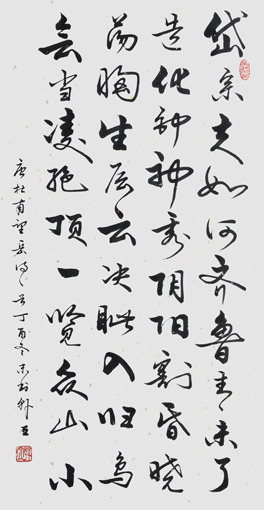 岱宗夫如何齐鲁青未了
造化钟神秀阴阳割昏晓
荡胸生层云决眦入归鸟
会当凌绝顶一览众山小
唐杜甫望岳诗一首丁酉冬末